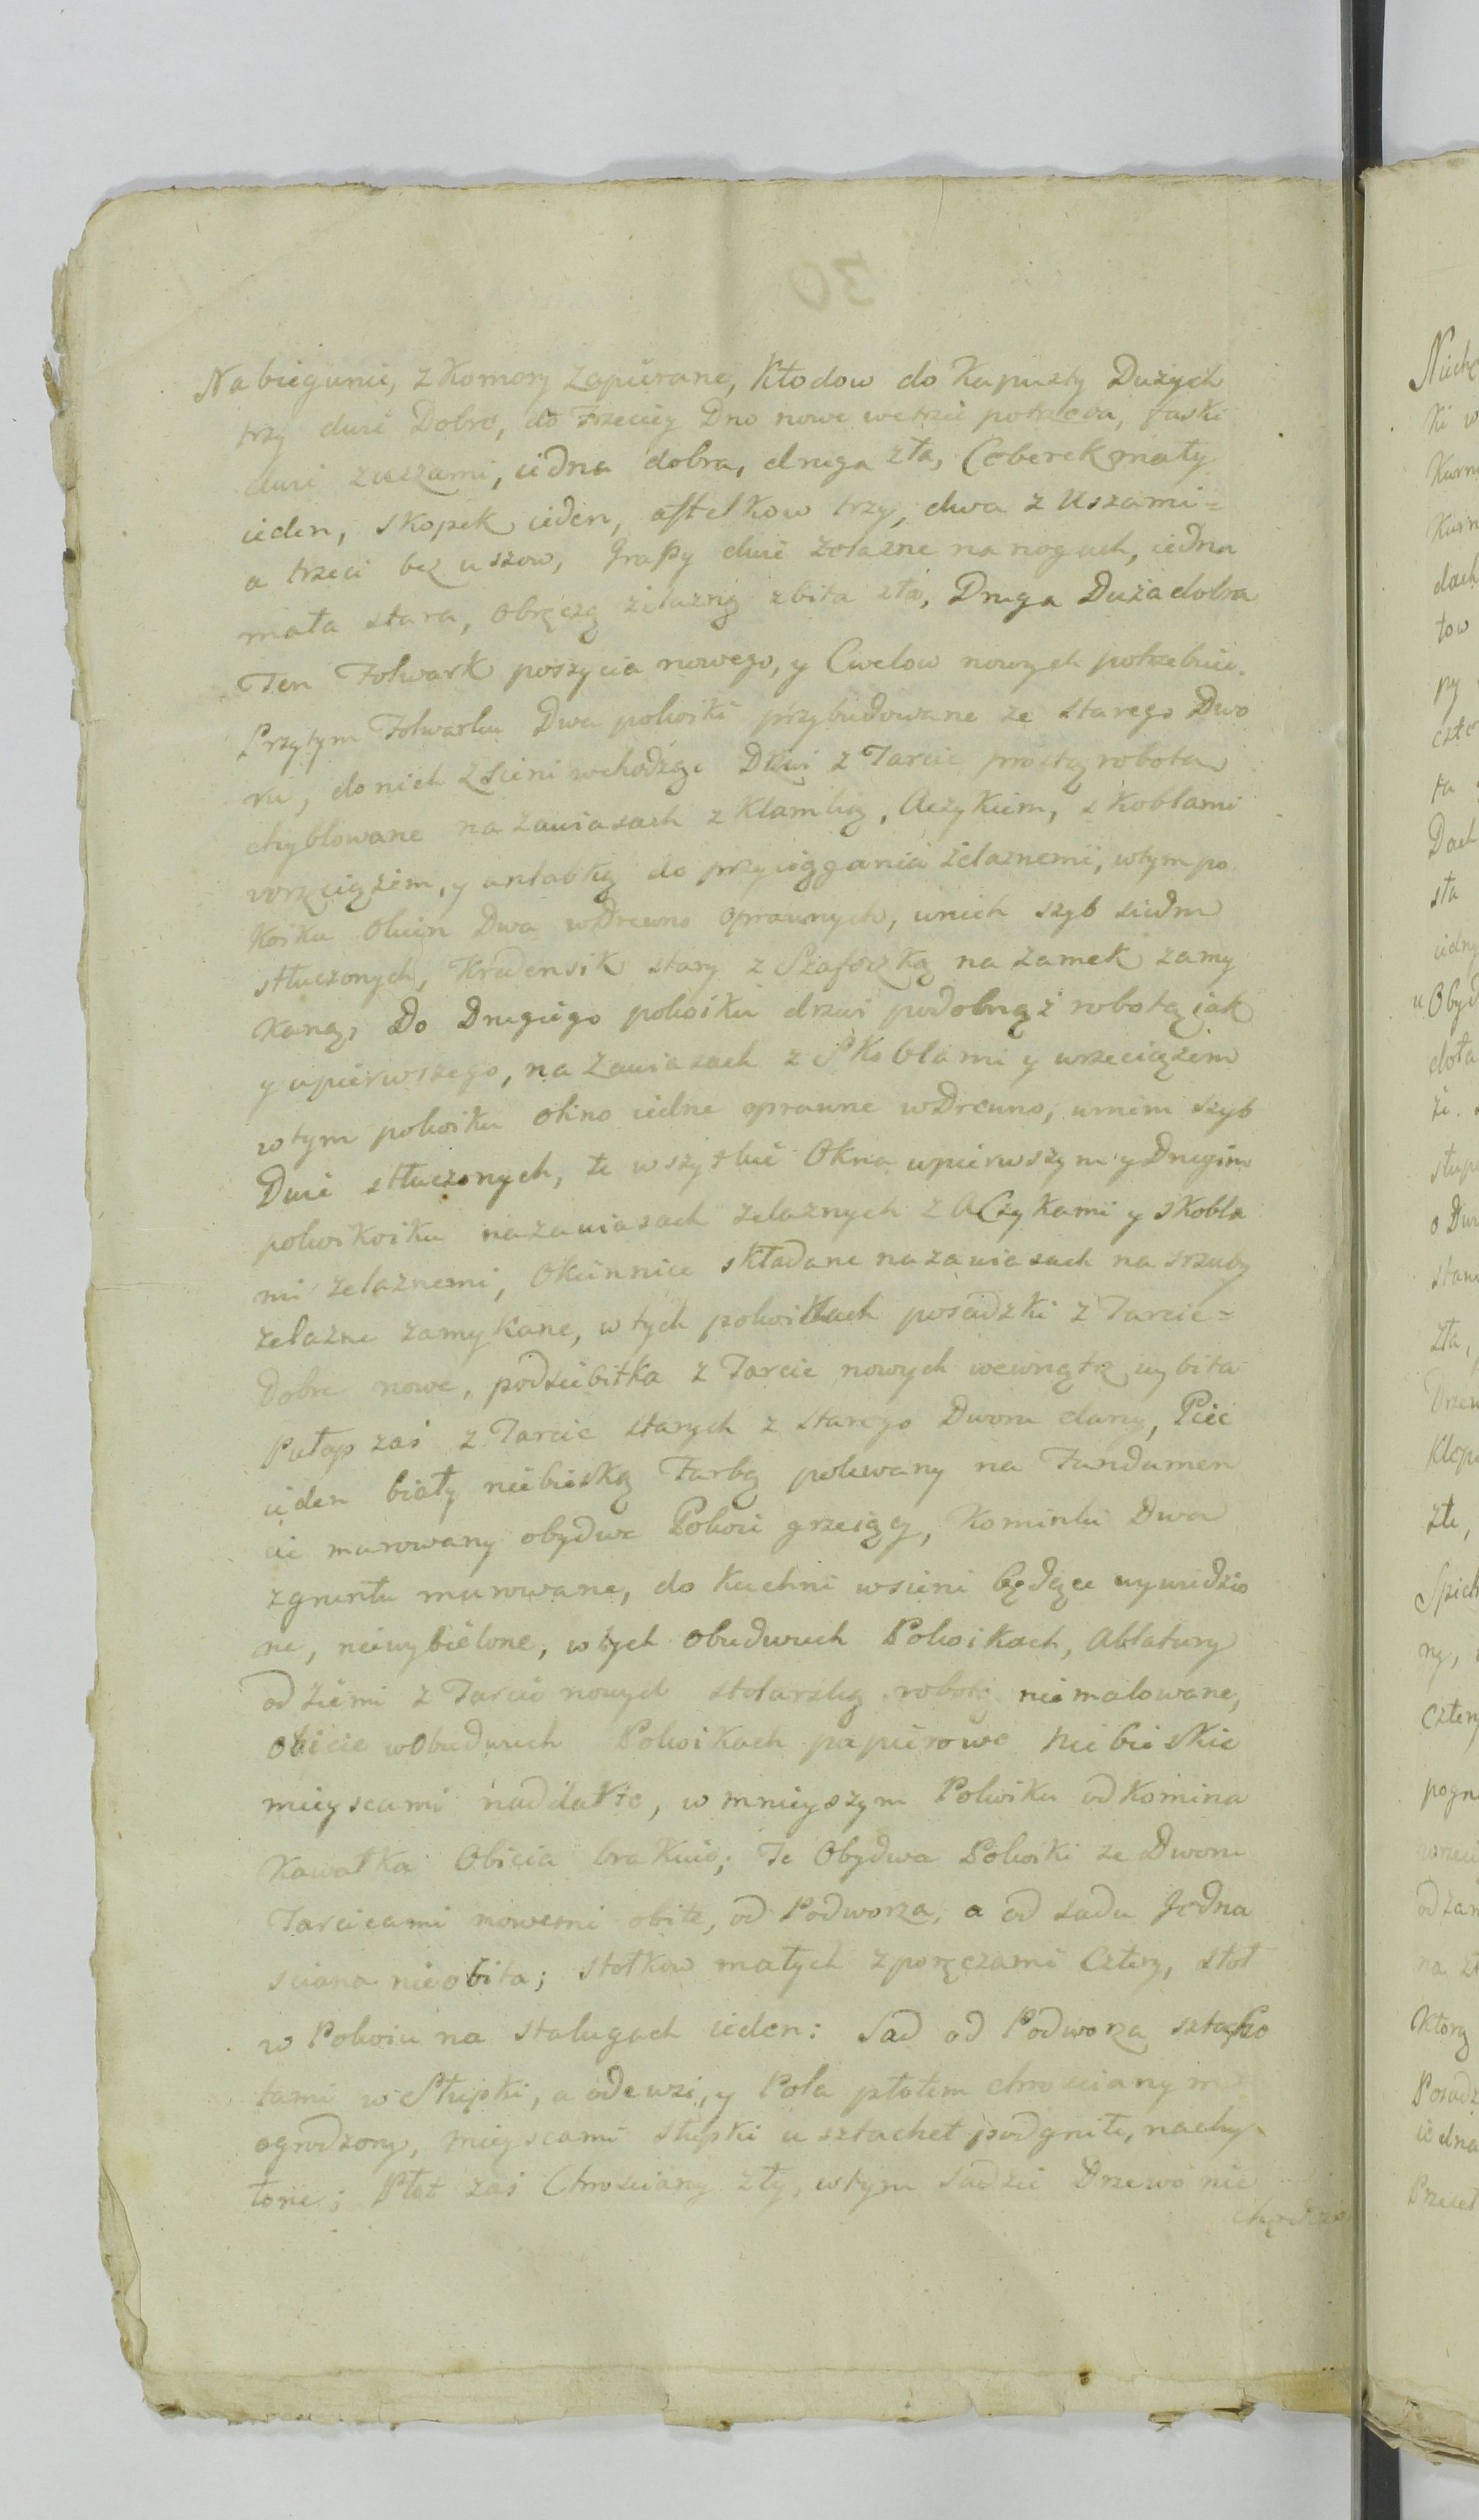 Na biegunie, z Komory Zapierane, Kłodow do Kapusty Dużych
trzy dwie Dobre, do Trzeciey Dno nowe wetrzeć potrzeba, faski
dwie zuszami, iedna dobra, druga zła, Ceberek mały
ieden, skopek ieden, ostelkow trzy, dwa z Uszami=
a trzeci bez uszow, Graßy dwie żelazne na nogach, iedna
mała stara, obręczą żelazną zbita zła, Druga Duża dobra
Ten Folwark poszycia nowego, y Cwelow nowych potrzebuie.
Przytym Folwarku Dwa pokoiki przybudowane ze starego Dwo
ru, do nich z Sieni wchodząc Drzwi z Tarcic prostą robotą
chyblowane na zawiasach z Klamką, Aczykiem, skoblami
wrzeciążem, y antabką do przyciągania żelaznemi, wtym po
koiku Okien Dwa w Drewno oprawnych, wnich szyb siedm
stłuczonych, Kredensik stary z Szafeczką na zamek zamy
kaną, Do Drugiego pokoiku drzwi podobnąż robotą jak
y upierwszego, na zawiasach z Skoblami y wrzeciążem
w tym pokoiku okno iedne oprawne w Drewno, wnim szyb
Dwie stłuczonych, te wszystkie Okna wpierwszym y Drugim
pokoikoiku na zawiasach żelaznych z Aczykami y skobla
mi żelaznemi, Okiennice składane na zawiasach na srzuby
żelazne zamykane, w tych pokoikach posadzki z Tarcic=
Dobre nowe, podsiebitka z Tarcic nowych wewnątrz wybita
Pułap zaś z Tarcic starych z starego Dworu dany, Piec
ieden biały niebieską Farbą polewany na Fundamen
cie murowany obydwa Pokoie grzeiący, Kominki Dwa
zgruntu murowane, do Kuchni wsieni będące wywiedzio
ne, niewybielone, w tych obudwuch Pokoikach, Ablatury
od ziemi z Tarcic nowych stolarską robotą nie malowane,
Obicie w Obudwuch Pokoikach papierowe Niebieskie
mieyscami naddarte, w mnieyszym Pokoiku od Komina
Kawałka Obicia brakuie; Te Obydwa Pokoiki ze Dworu
Tarcicami nowemi obite, od Podworza, a od sadu Jedna
sciana nie obita; stołkow małych zporęczami Cztery, stoł
w Pokoiu na stalugach ieden: Sad od Podworza sztache
tami w Słupki, a ode wsi, y Pola płotem chrosciany m
ogrodzony, mieyscami słupki u sztachet podgniłe, nachy
lone; Płot zaś Chrosciany zły, wtym Sadzie Drzewo nie